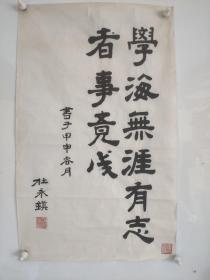 學海無涯有志
者事竟成
書于甲申春月
杜永鎮